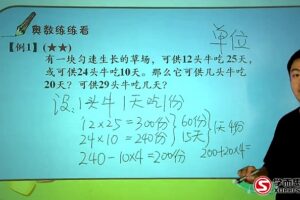 奥数练练看
单位
【例1】(★★)
有一块匀速生长的草场，可供12头牛吃25天，
或可供24头牛吃10天。那么它可供几头牛吃
20天？可供29头牛吃几天？
设:1头牛1天吃1份
12×25=300份 } 60份 } 1天4份
24×10=240份 } 15天 }
240-10×4=200份 200+20×4=
学而思